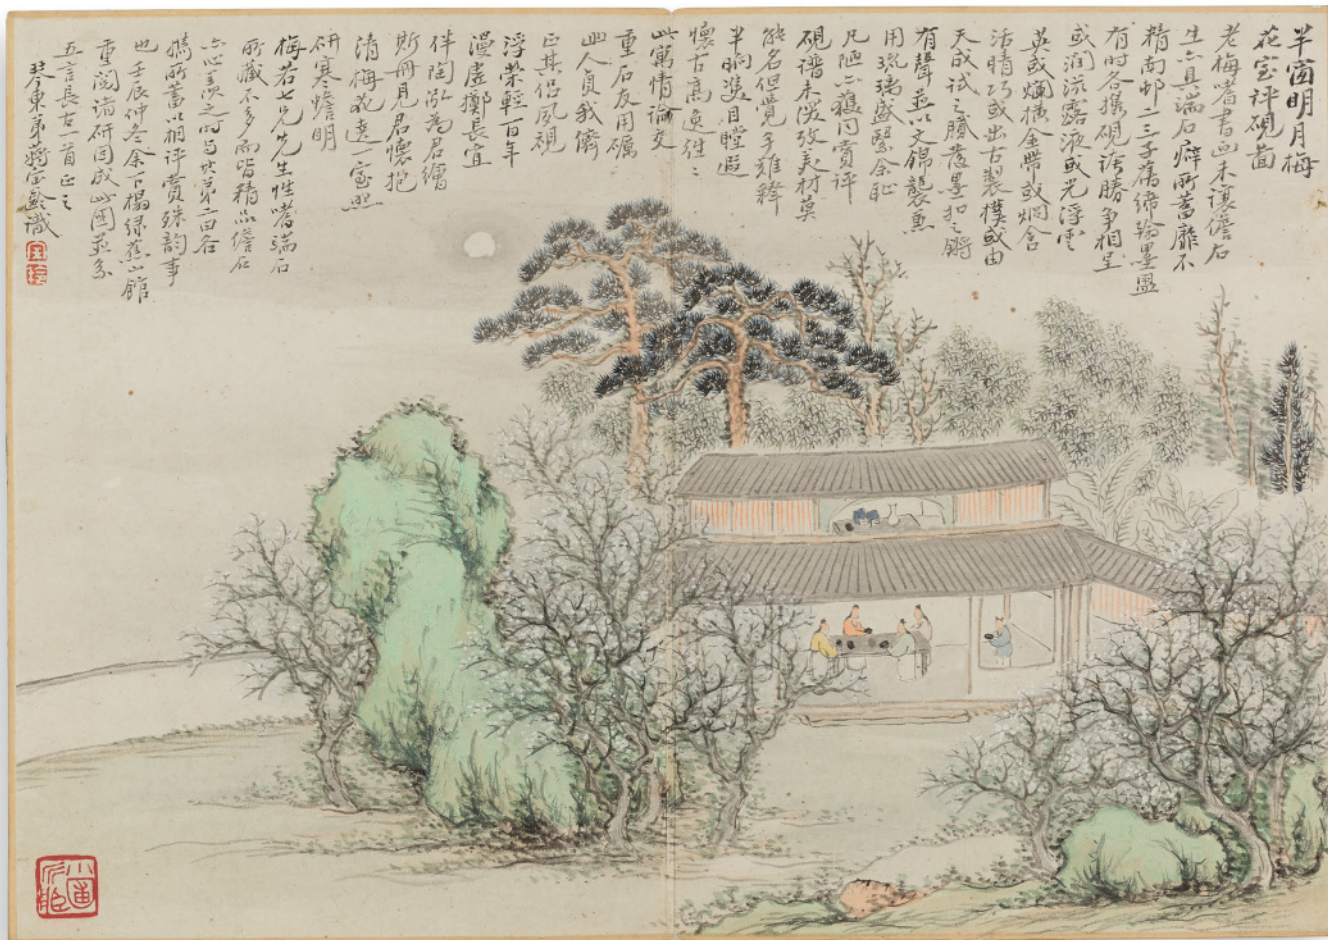 半窗明月梅
花室評硯圖
老梅嗜書畫未讓儋石
生亦具端石癖所蓄靡不
精南邨二三子舊締翰墨盟
有時各攜硯誇勝爭相呈
或潤滋露液或光浮雲
英或斕橫金帶或炯含
活睛巧或出古製樸或由
天成試之膩發墨扣之鏘
有聲並以文錦襲兼
用琉璃盛緊余耻
凡陋亦獲同賞評
硯譜未深攷美材莫
能名但覺手難釋
半晌雙目瞠遐
懷古高逸往之
此寓情論交
重石友用礪
此人貞我儕
正其侶夙硯
浮榮輕百年
漫虛擲長宜
伴陶泓為君繪
斯冊見君懷抱
清梅花遶一室照
研寒蟾明
梅若七兄先生性嗜端石
所藏不多而皆精品儋石
亦心羨之時與 弟二田各
攜所蓄以相評賞殊韵事
也壬辰仲冬余下榻綠蕉山館
重閱諸研因成此圖並系
五言長古一首正之
琴東弟蔣寶齡識